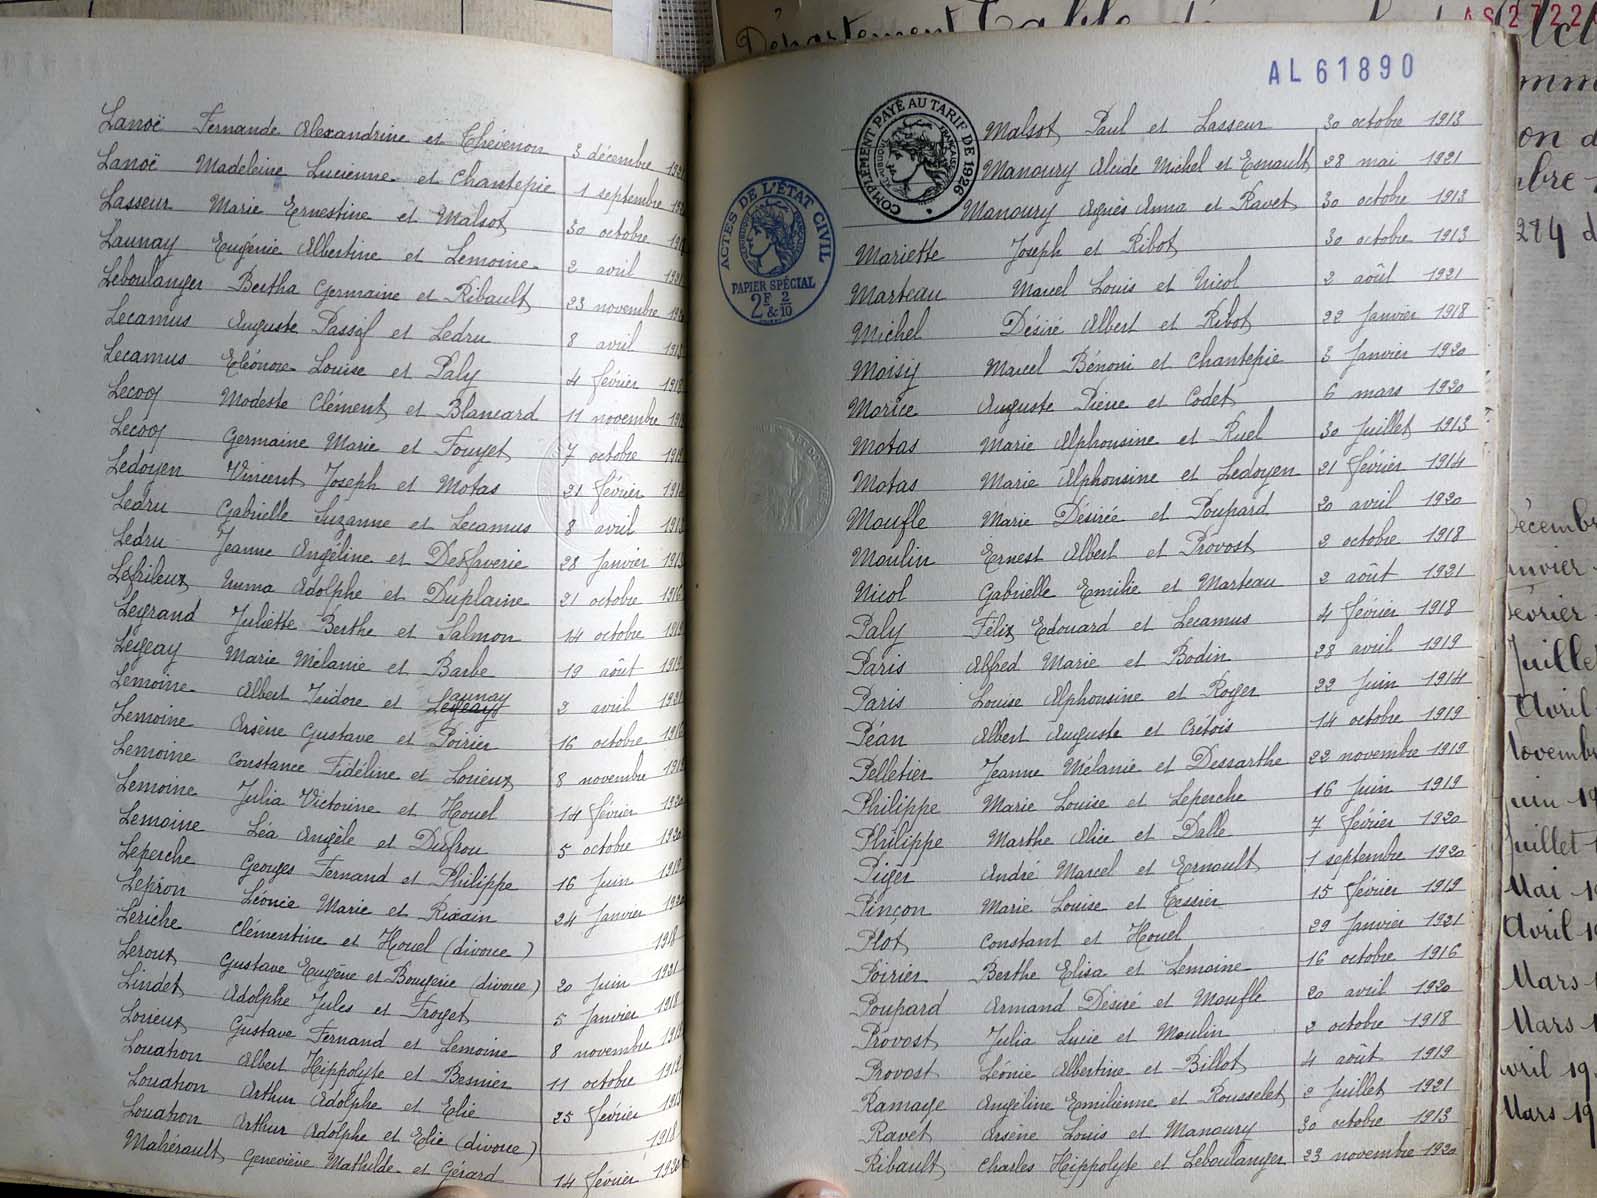 Lanoë Fernande Alexandrine et Thévenon 3 décembre
Lanoë Madeleine Lucienne et Chantepie 1 septembre
Lasseur Marie Ernestine et Malsot 30 octobre
Launay Eugénie Albertine et Lemoine 2 avril
Leboulanger Bertha Germaine et Ribault 23 novembre
Lecamus Auguste Passif et Ledru 8 avril
Lecamus Eléonore Louise et Paly 4 février 1918
Lecoq Modeste Clément et Blancard 11 novembre
Lecoq Germaine Marie et Fouyet 7 octobre
Ledoyen Vincent Joseph et Motas 21 février
Ledru Gabrielle Suzanne et Lecamus 8 avril
Ledru Jeanne Angéline et Desfaverie 28 Janvier 1913
Lefrileux Numa Adolphe et Duplaine 21 octobre 1916
Legrand Juliette Berthe et Salmon 14 octobre 1919
Legeay Marie Mélanie et Barbe 19 août 1919
Lemoine Albert Isidore et Launay 2 avril 1921
Lemoine Arsène Gustave et Poirier 16 octobre 1916
Lemoine Constance Fidéline et Lorieux 8 novembre
Lemoine Julia Victorine et Houel 14 février 1920
Lemoine Léa Angèle et Dufrou 5 octobre 1920
Leperche Georges Fernand et Philippe 16 Juin 1919
Lepron Léonie Marie et Rixain 24 Janvier 1920
Leriche Clémentine et Houel (divorce) 1918
Leroux Gustave Eugène et Bougerie (divorce) 20 Juin 1921
Lindet Adolphe Jules et Froyet 5 Janvier 1918
Lorieux Gustave Fernand et Lemoine 8 novembre
Louatron Albert Hippolyte et Besnier 11 octobre
Louatron Arthur Adolphe et Elie 25 février 1913
Louatron Arthur Adolphe et Elie (divorce) 1918
Mahérault Geneviève Mathilde et Gérard 14 février 1920
AL 61890
COMPLÉMENT PAYÉ AU TARIF DE 1926
ACTES DE L'ÉTAT CIVIL
PAPIER SPÉCIAL
2F & 2/10
Malsot Paul et Lasseur 30 octobre 1913
Manoury Alcide Michel et Esnault 28 mai 1921
Manoury Agnès Anna et Ravet 30 octobre 1913
Mariette Joseph et Ribot 30 octobre 1913
Marteau Marcel Louis et Nicol 2 août 1921
Michel Désiré Albert et Ribot 22 Janvier 1918
Moisy Marcel Bénoni et Chantepie 3 Janvier 1920
Morice Auguste Pierre et Codet 6 mars 1920
Motas Marie Alphonsine et Ruel 30 Juillet 1913
Motas Marie Alphonsine et Ledoyen 21 février 1914
Moufle Marie Désirée et Poupard 20 avril 1920
Moulin Ernest Albert et Provost 2 octobre 1918
Nicol Gabrielle Emilie et Marteau 2 août 1921
Paly Félix Edouard et Lecamus 4 février 1918
Paris Alfred Marie et Bodin 28 avril 1919
Paris Louise Alphonsine et Royer 22 Juin 1914
Péan Albert Auguste et Crétois 14 octobre 1919
Pelletier Jeanne Mélanie et Dessarthe 22 novembre 1919
Philippe Marie Louise et Leperche 16 Juin 1919
Philippe Marthe Alice et Dalle 7 février 1920
Piger André Marcel et Ernoult 1 septembre 1920
Pinçon Marie Louise et Tessier 15 février 1919
Plot Constant et Houel 29 Janvier 1921
Poirier Berthe Elisa et Lemoine 16 octobre 1916
Poupard Armand Désiré et Moufle 20 avril 1920
Provost Julia Lucie et Moulin 2 octobre 1918
Provost Léonie Albertine et Billot 4 août 1919
Ramage Angéline Emilienne et Rousselet 2 Juillet 1921
Ravet Arsène Louis et Manoury 30 octobre 1913
Ribault Charles Hippolyte et Leboulanger 23 novembre 1920